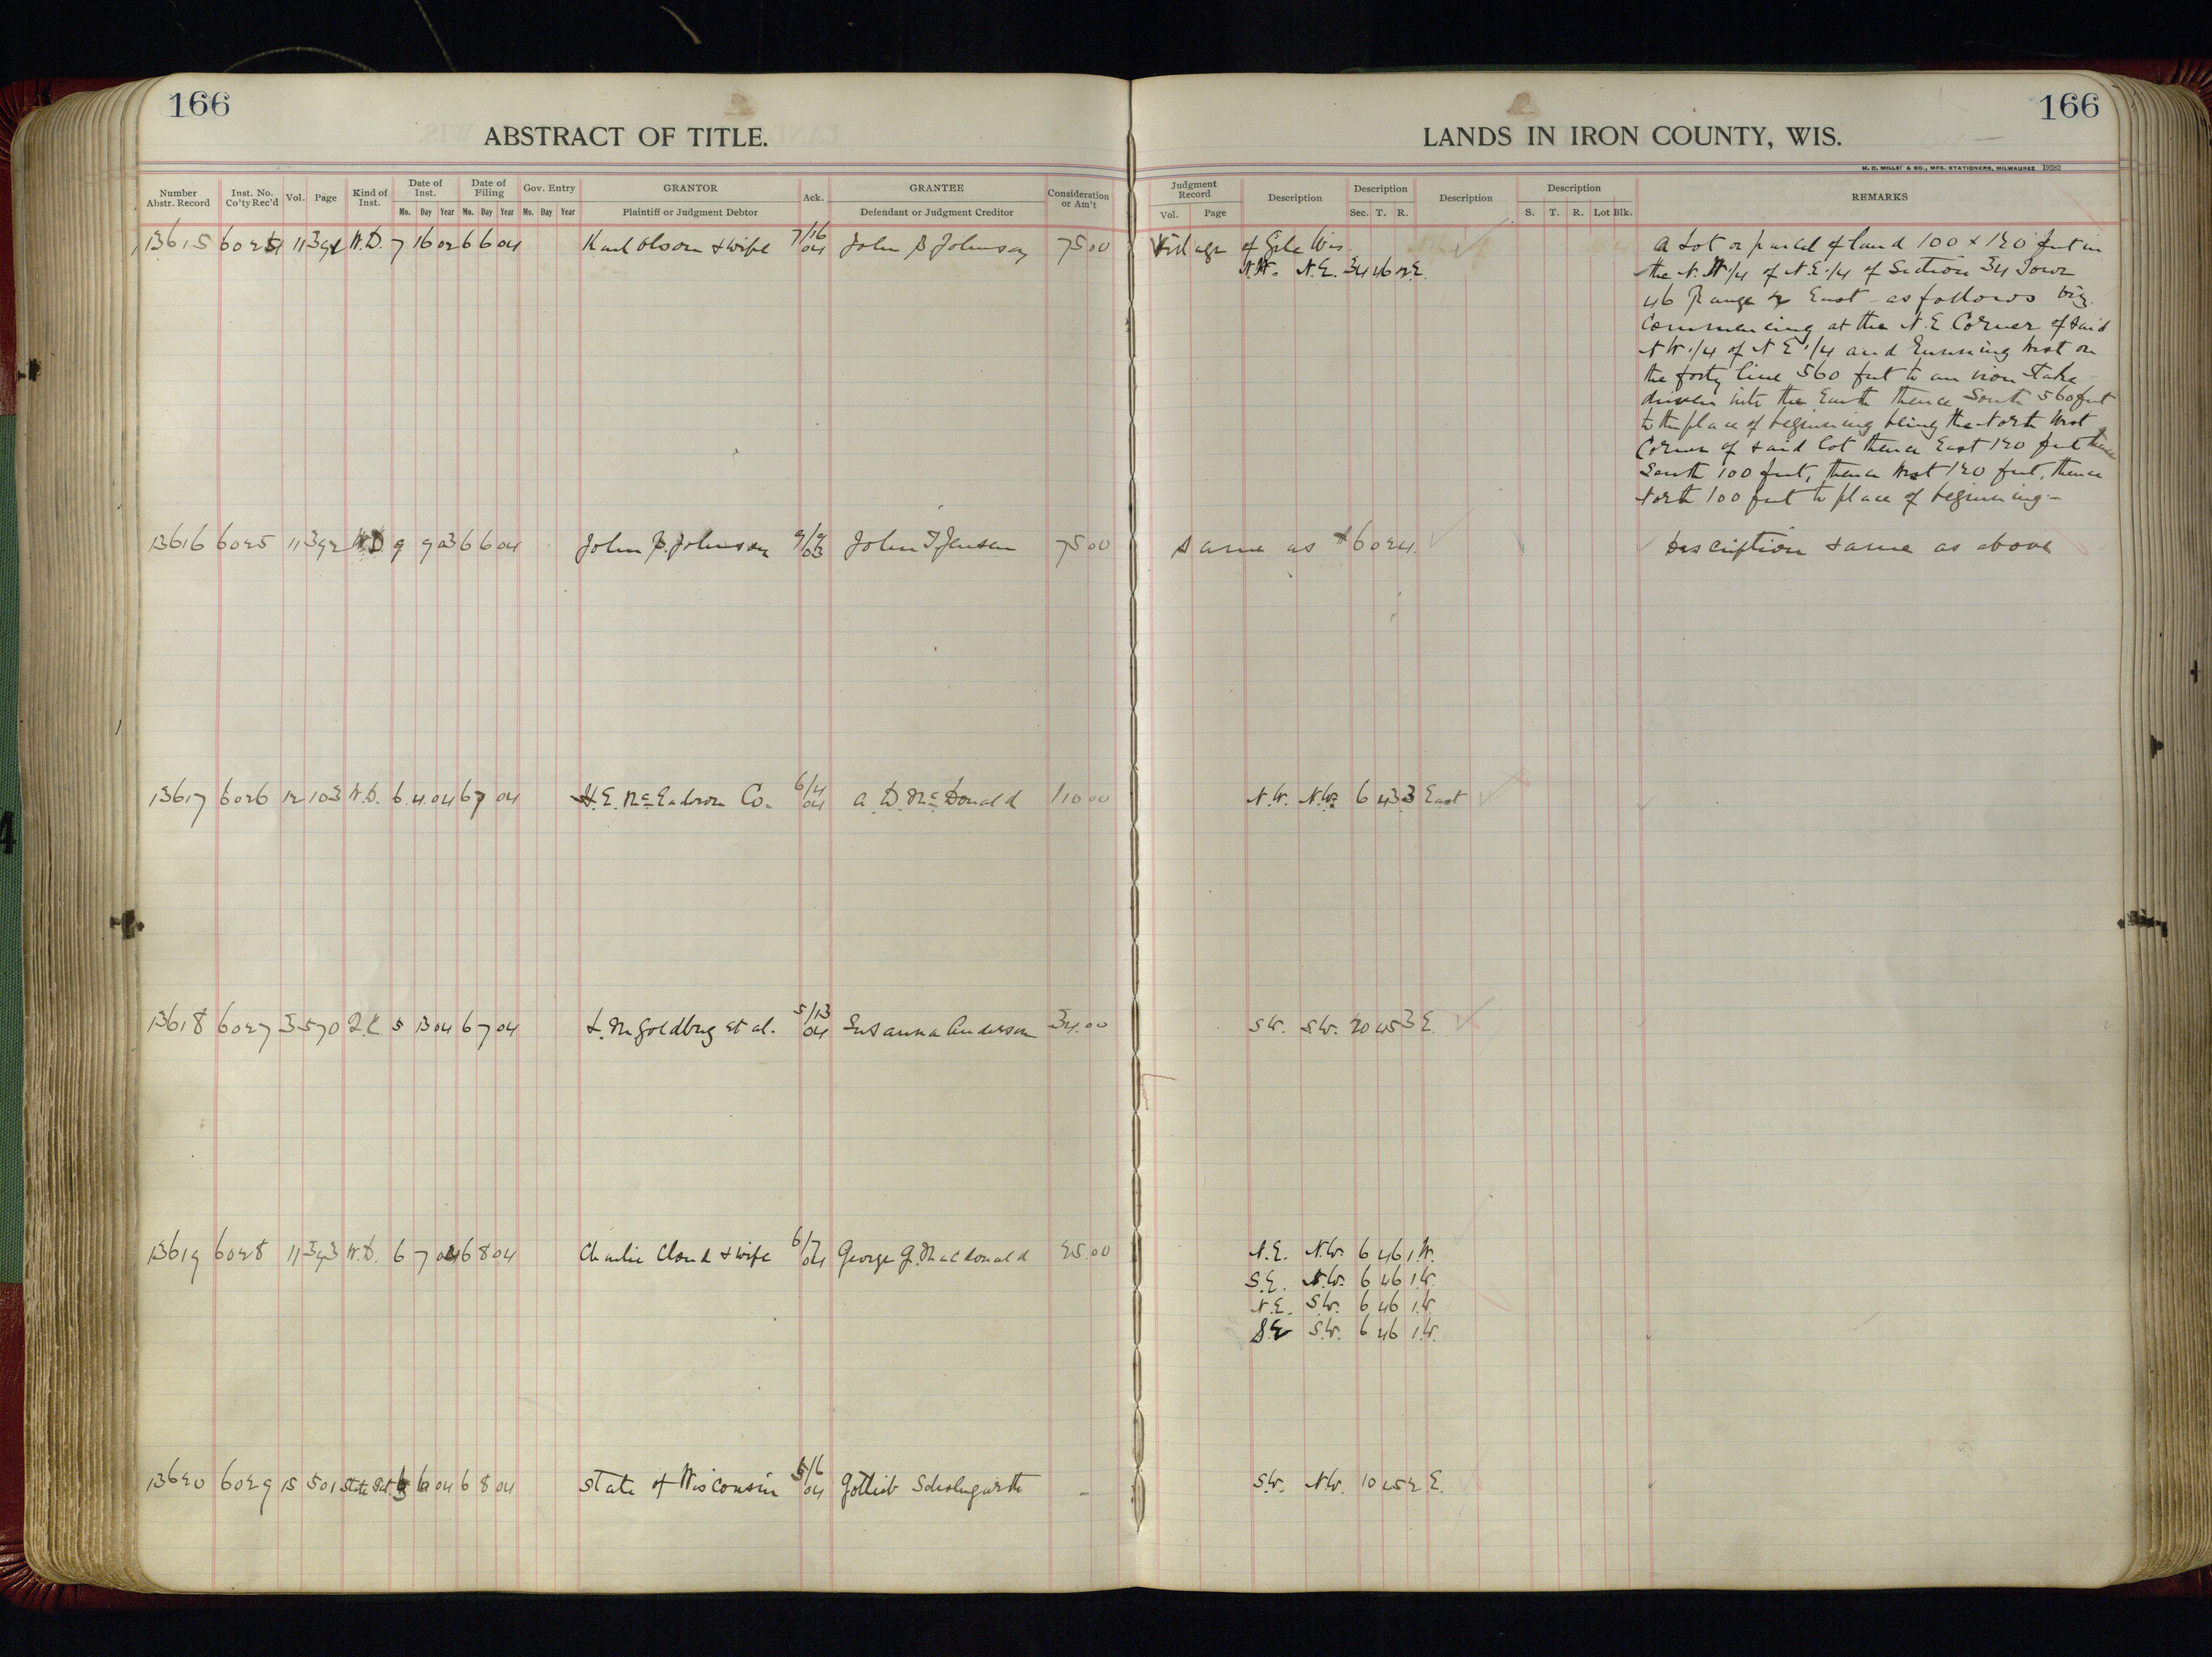 166
ABSTRACT OF TITLE.
Number Abstr. Record Inst. No. Co'ty Rec'd Vol. Page Kind of Inst. Date of Inst. Date of Filing Gov. Entry GRANTOR Ack. GRANTEE Consideration or Am't
Mo. Day Year Mo. Day Year Mo. Day Year Plaintiff or Judgment Debtor Defendant or Judgment Creditor
13615 6024 11 391 W.D. 7 16 02 6 6 04 Karl Olson & wife 7/16 04 John P Johnson 75 00
13616 6025 11 392 W.D 9 9 03 6 6 04 John P. Johnson 9/9 03 John F Jensen 75 00
13617 6026 12 103 W.D. 6 4 04 6 7 04 H.E. McEachron Co. 6/4 04 A. D. McDonald 110 00
13618 6027 3 570 Q.C. 5 13 04 6 7 04 L. M Goldberg et al. 5/13 04 Susanna Anderson 34.00
13619 6028 11 393 W.D. 6 7 04 6 8 04 Charlie Cloud & wife 6/7 04 George G. Macdonald 25.00
13620 6029 15 501 State Pat. 04 6 8 04 State of Wisconsin 04 Gottlieb –
166
LANDS IN IRON COUNTY, WIS.
H. C. MILLER & CO., MFG. STATIONERS, MILWAUKEE 19282
Judgment Record Description Description Description Description REMARKS
Vol. Page Sec. T. R. S. T. R. Lot Blk.
Village of Gile Wis.
N.W. N.E. 34 46 2 E.
A Lot or parcel of land 100 x 120 feet in
the N.W 1/4 of N.E. 1/4 of Section 34 Town
46 Range 2 East - as follows viz.
Commencing at the N.E Corner of said
N W. 1/4 of N E 1/4 and running West on
the forty line 560 feet to an iron stake
driven into the Earth thence South 560 feet
to the place of beginning being the North West
Corner of said lot thence East 120 feet thence
South 100 feet, thence West 120 feet, thence
North 100 feet to place of beginning.-
Same as #6024. Description same as above
N.W. N.W. 6 43 3 East
S.W. S.W. 20 45 3 E.
N.E. N.W. 6 46 1 W.
S.E. N.W. 6 46 1 W.
N.E. S.W. 6 46 1 W.
S.E S.W. 6 46 1 W.
S.W. N.W. 10 45 2 E.